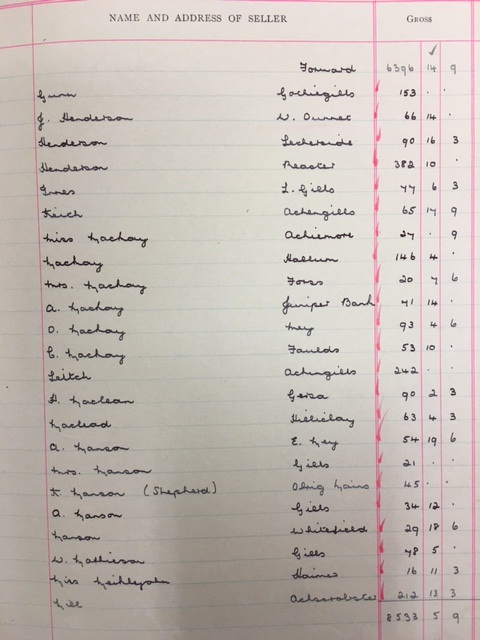 NAME AND ADDRESS OF SELLER GROSS
Forward 6396 14 9
Gunn Gothiegills 153 . .
J. Henderson W. Dunnet 66 14 .
Henderson Lecherside 90 16 3
Henderson Reaster 382 10 .
Innes L. Gills 77 6 3
Keith Achengills 65 17 9
Miss Mackay Achiemore 27 . 9
Mackay 146 4 .
Mrs. Mackay Forss 20 7 6
A. Mackay Juniper Bank 71 14 .
D. Mackay Mey 93 4 6
C. Mackay Faulds 53 10 .
Leitch Achengills 242 . .
H. Maclean Gersa 90 2 3
Macleod Hilliclay 63 4 3
A. Manson E. Mey 54 19 6
Mrs. Manson Gills 21 . .
K. Manson (Shepherd) Olrig Mains 45 . .
A. Manson Gills 34 12 .
Manson Whitefield 29 18 6
W. Mathieson Gills 78 5 .
Miss Meiklejohn Haimer 16 11 3
Mill Achscrabster 212 13 3
8533 5 9